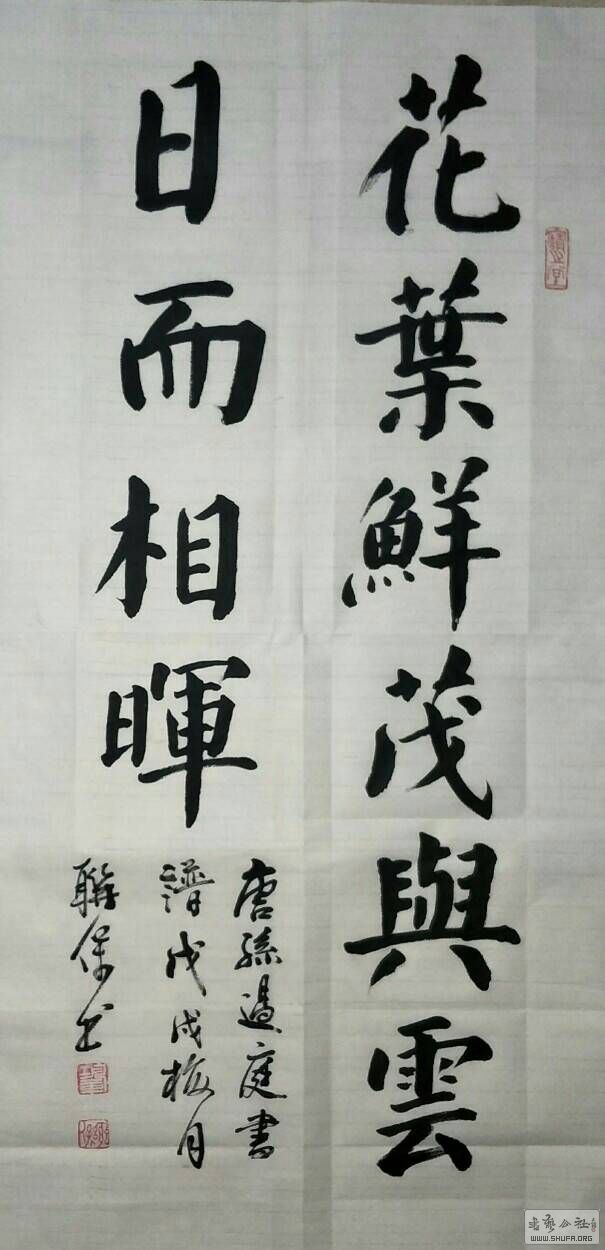 花葉鮮茂與雲
日而相暉
唐孫過庭書
譜戊戌梅月
聯保书
书艺公社
WWW.SHUFA.ORG